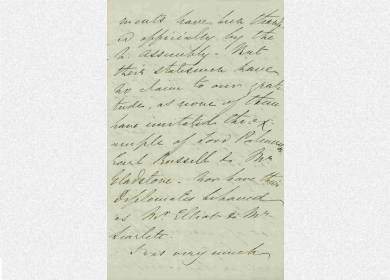 ments have been thank
ed officially by the
N. Assembly. But
their statesmen have
no claim to our grat
itude, as none of them
have imitated the ex-
ample of Lord Palmers
Earl Russell & Mr
Gladstone. Nor have their
Diplomates behaved
as Mr Elliot & Mr
Scarlett.
I was very much